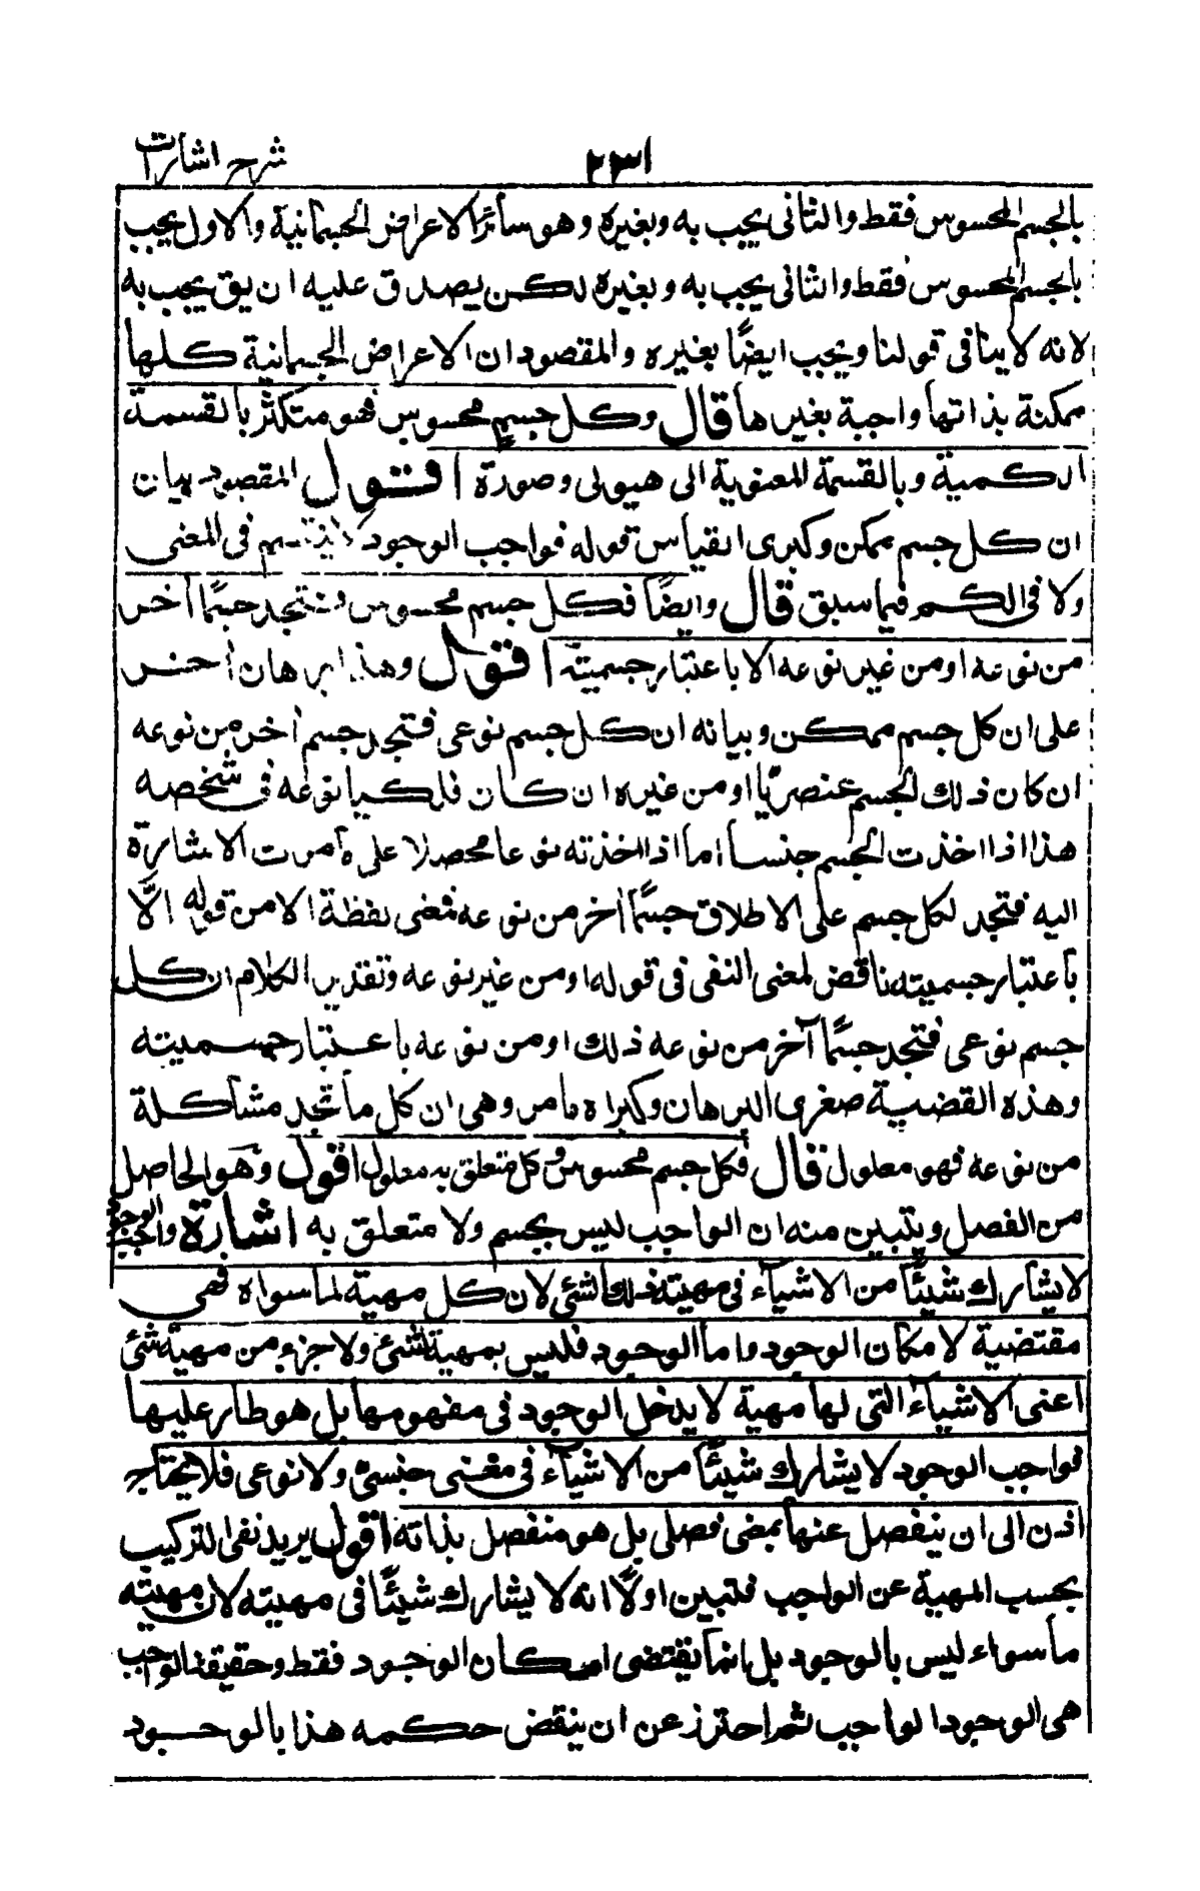 شرح اشارات
٢٣١
بالجسم المحسوس فقط والثانى يجب به وبغيره وهو سائر الاعراض الجسمانية والاول يجب
بالجسم المحسوس فقط والثانى يجب به وبغيره لكن يصدق عليه ان يق يجب به
لانه لا ينافى قولنا ويجب ايضًا بغيره والمقصود ان الاعراض الجسمانية كلها
ممكنة بذاتها واجبة بغيرها قال وكل جسم محسوس فهو متكثر بالقسمة
الكمية وبالقسمة المعنوية الى هيولى وصورة اقول المقصود بيان
ان كل جسم ممكن وكبرى القياس قوله فواجب الوجود لا ينقسم فى المعنى
ولا فى الكم فيما سبق قال وايضًا فكل جسم محسوس فتجد جسمًا اخر
من نوعه او من غير نوعه الا باعتبار جسميته اقول وهذا برهان اخر
على ان كل جسم ممكن وبيانه ان كل جسم نوعى فتجد جسم اخر من نوعه
ان كان ذلك الجسم عنصريًا او من غيره ان كان فلكيا نوعه فى شخصه
هذا اذا اخذت الجسم جنسا اما اذا اخذته نوعا محصلا على ما مرت الاشارة
اليه فتجد لكل جسم على الاطلاق جسمًا اخر من نوعه فمعنى لفظة الا من قوله الّا
باعتبار جسميته ناقض لمعنى النفى فى قوله او من غير نوعه وتقدير الكلام ان كل
جسم نوعى فتجد جسمًا آخر من نوعه ذلك او من نوعه باعتبار جسميته
وهذه القضية صغرى البرهان وكبراه ما مر وهى ان كل ما تجد مشاكلة
من نوعه فهو معلول قال فكل جسم محسوس وكل متعلق به معلول اقول وهو الحاصل
من الفصل ويتبين منه ان الواجب ليس بجسم ولا متعلق به اشارة واجب الوجود
لا يشارك شيئًا من الاشيآء فى مهية ذلك الشئ لان كل مهية لما سواه فهى
مقتضية لامكان الوجود واما الوجود فليس بمهية لشئ ولا جزء من مهية شئ
اعنى الاشيآء التى لها مهية لا يدخل الوجود فى مفهومها بل هو طار عليها
فواجب الوجود لا يشارك شيئًا من الاشيآء فى معنى جنسى ولا نوعى فلا يحتاج
اذن الى ان ينفصل عنها بمعنى فصلى بل هو منفصل بذاته اقول يريد نفى التركيب
بحسب المهية عن الواجب فتبين اولًا انه لا يشارك شيئًا فى مهيته لان مهيته
ما سواه ليس بالوجود بل انما يقتضى امكان الوجود فقط وحقيقة الواجب
هى الوجود الواجب ثم احترز عن ان ينقض حكمه هذا بالوجود